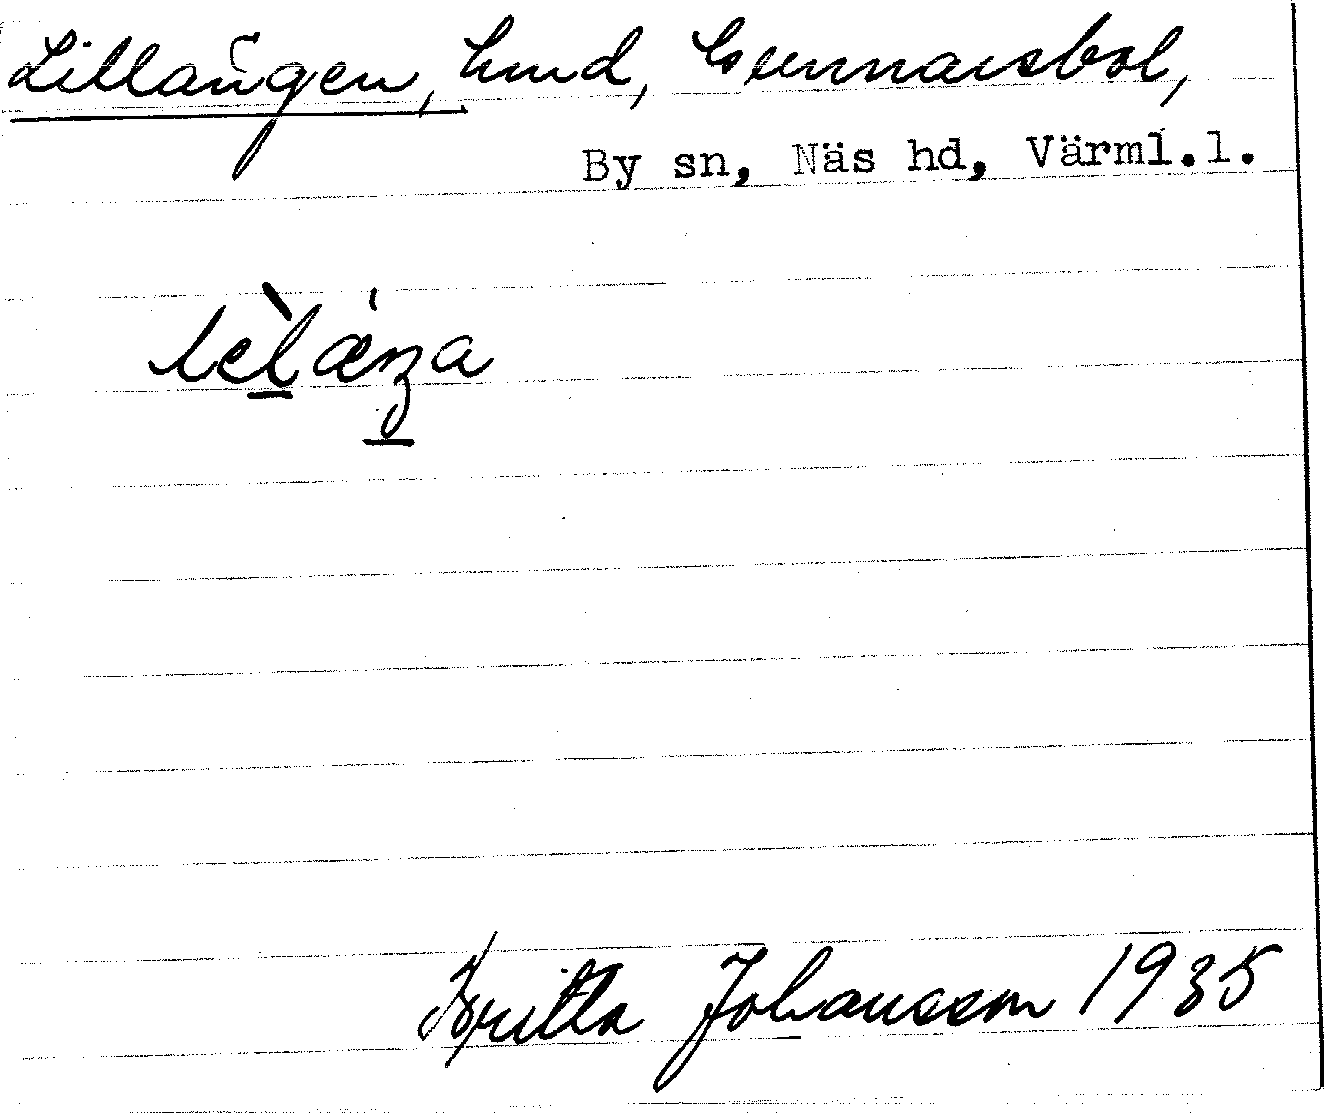 Lillängen, lund, Gunnarsbol,
By sn, Näs hd, Värml.l.
Britta Johansson 1935